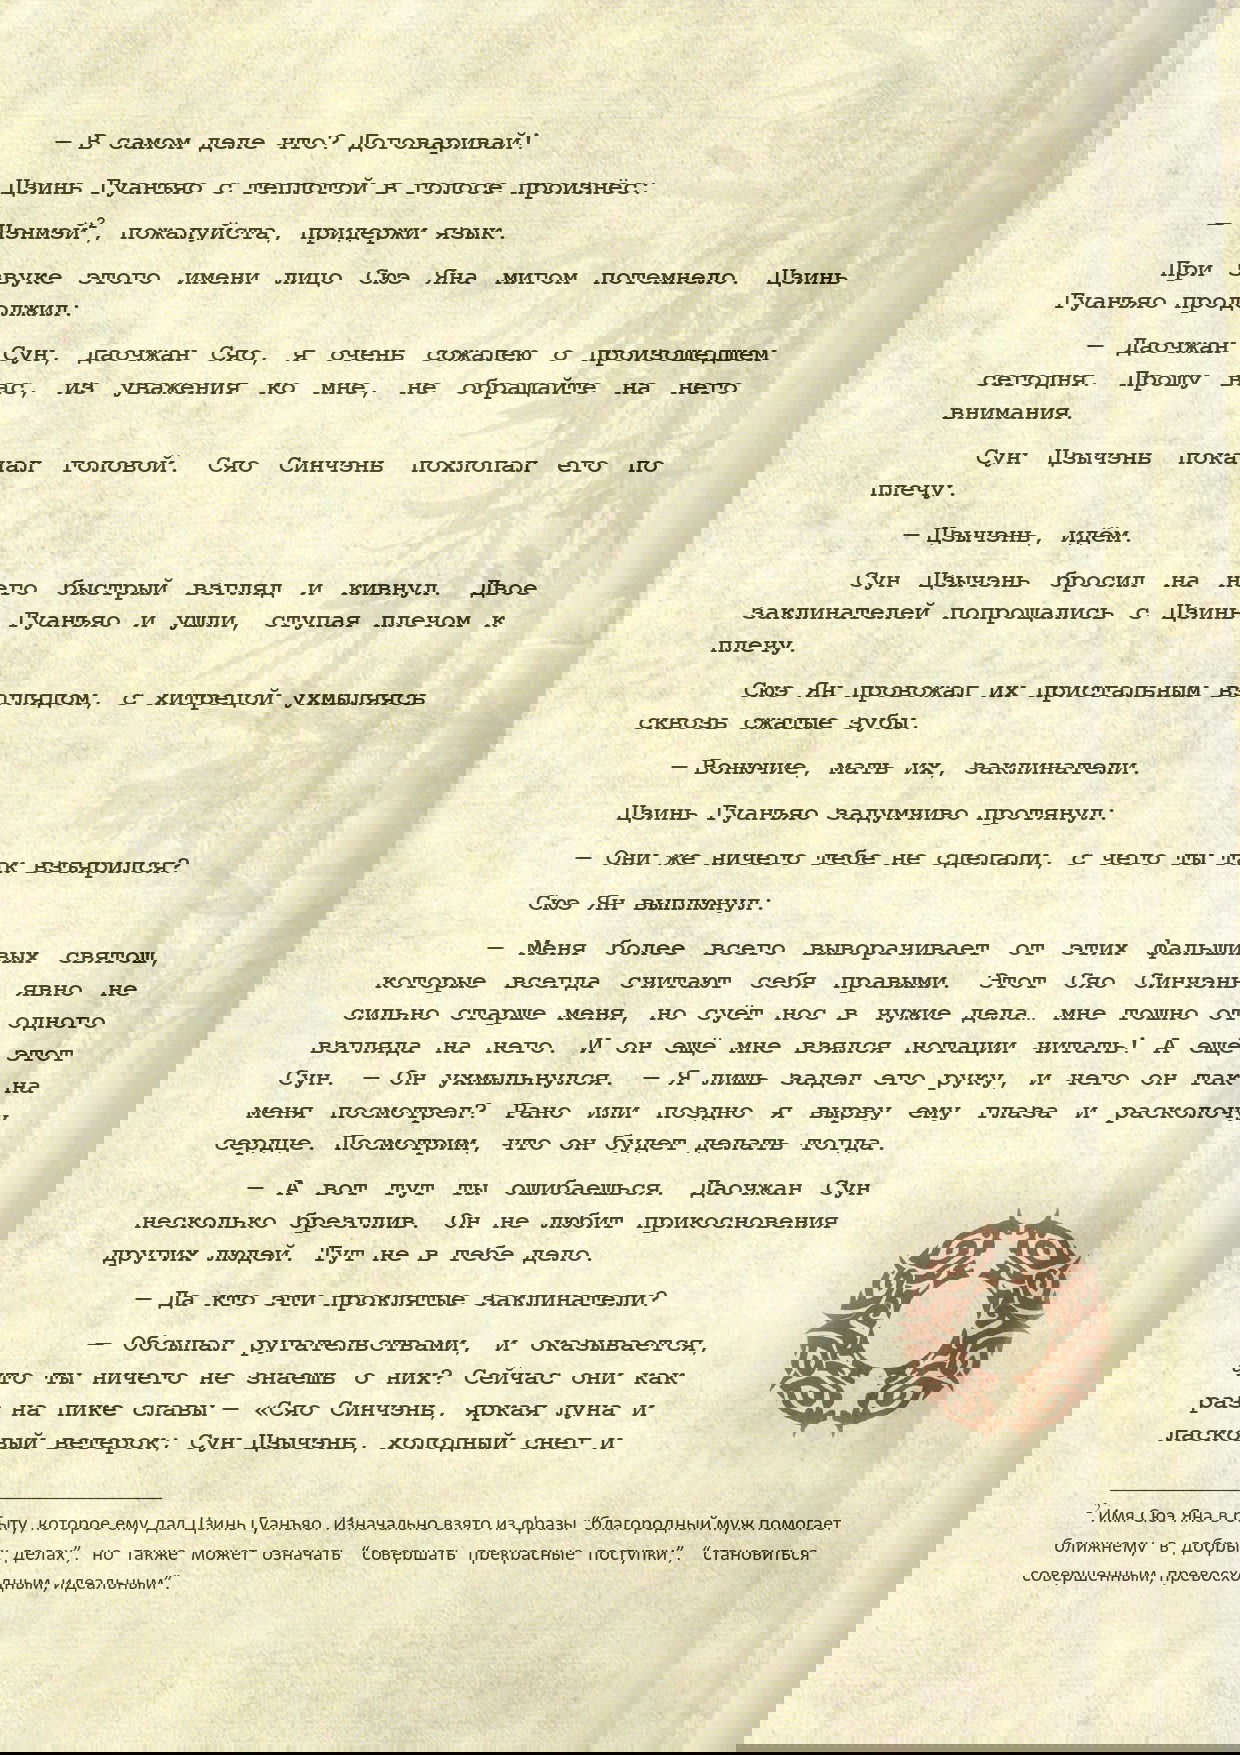 — В самом деле что? Договаривай!
Цзинь Гуанъяо с теплотой в голосе произнёс:
— Чэнмэй², пожалуйста, придержи язык.
При звуке этого имени лицо Сюэ Яна мигом потемнело. Цзинь
Гуанъяо продолжил:
— Даочжан Сун, даочжан Сяо, я очень сожалею о произошедшем
сегодня. Прошу вас, из уважения ко мне, не обращайте на него
внимания.
Сун Цзычэнь покачал головой. Сяо Синчэнь похлопал его по
плечу.
— Цзычэнь, идём.
Сун Цзычэнь бросил на него быстрый взгляд и кивнул. Двое
заклинателей попрощались с Цзинь Гуанъяо и ушли, ступая плечом к
плечу.
Сюэ Ян провожал их пристальным взглядом, с хитрецой ухмыляясь
сквозь сжатые зубы.
— Вонючие, мать их, заклинатели.
Цзинь Гуанъяо задумчиво протянул:
— Они же ничего тебе не сделали, с чего ты так взъярился?
Сюэ Ян выплюнул:
— Меня более всего выворачивает от этих фальшивых святош,
которые всегда считают себя правыми. Этот Сяо Синчэнь явно не
сильно старше меня, но суёт нос в чужие дела… мне тошно от одного
взгляда на него. И он ещё мне взялся нотации читать! А ещё этот
Сун. — Он ухмыльнулся. — Я лишь задел его руку, и чего он так на
меня посмотрел? Рано или поздно я вырву ему глаза и расколочу
сердце. Посмотрим, что он будет делать тогда.
— А вот тут ты ошибаешься. Даочжан Сун
несколько брезглив. Он не любит прикосновения
других людей. Тут не в тебе дело.
— Да кто эти проклятые заклинатели?
— Обсыпал ругательствами, и оказывается,
что ты ничего не знаешь о них? Сейчас они как
раз на пике славы — «Сяо Синчэнь, яркая луна и
ласковый ветерок; Сун Цзычэнь, холодный снег и
² Имя Сюэ Яна в быту, которое ему дал Цзинь Гуанъяо. Изначально взято из фразы “благородный муж помогает
ближнему в добрых делах”, но также может означать “совершать прекрасные поступки”, “становиться
совершенным, превосходным, идеальным”.